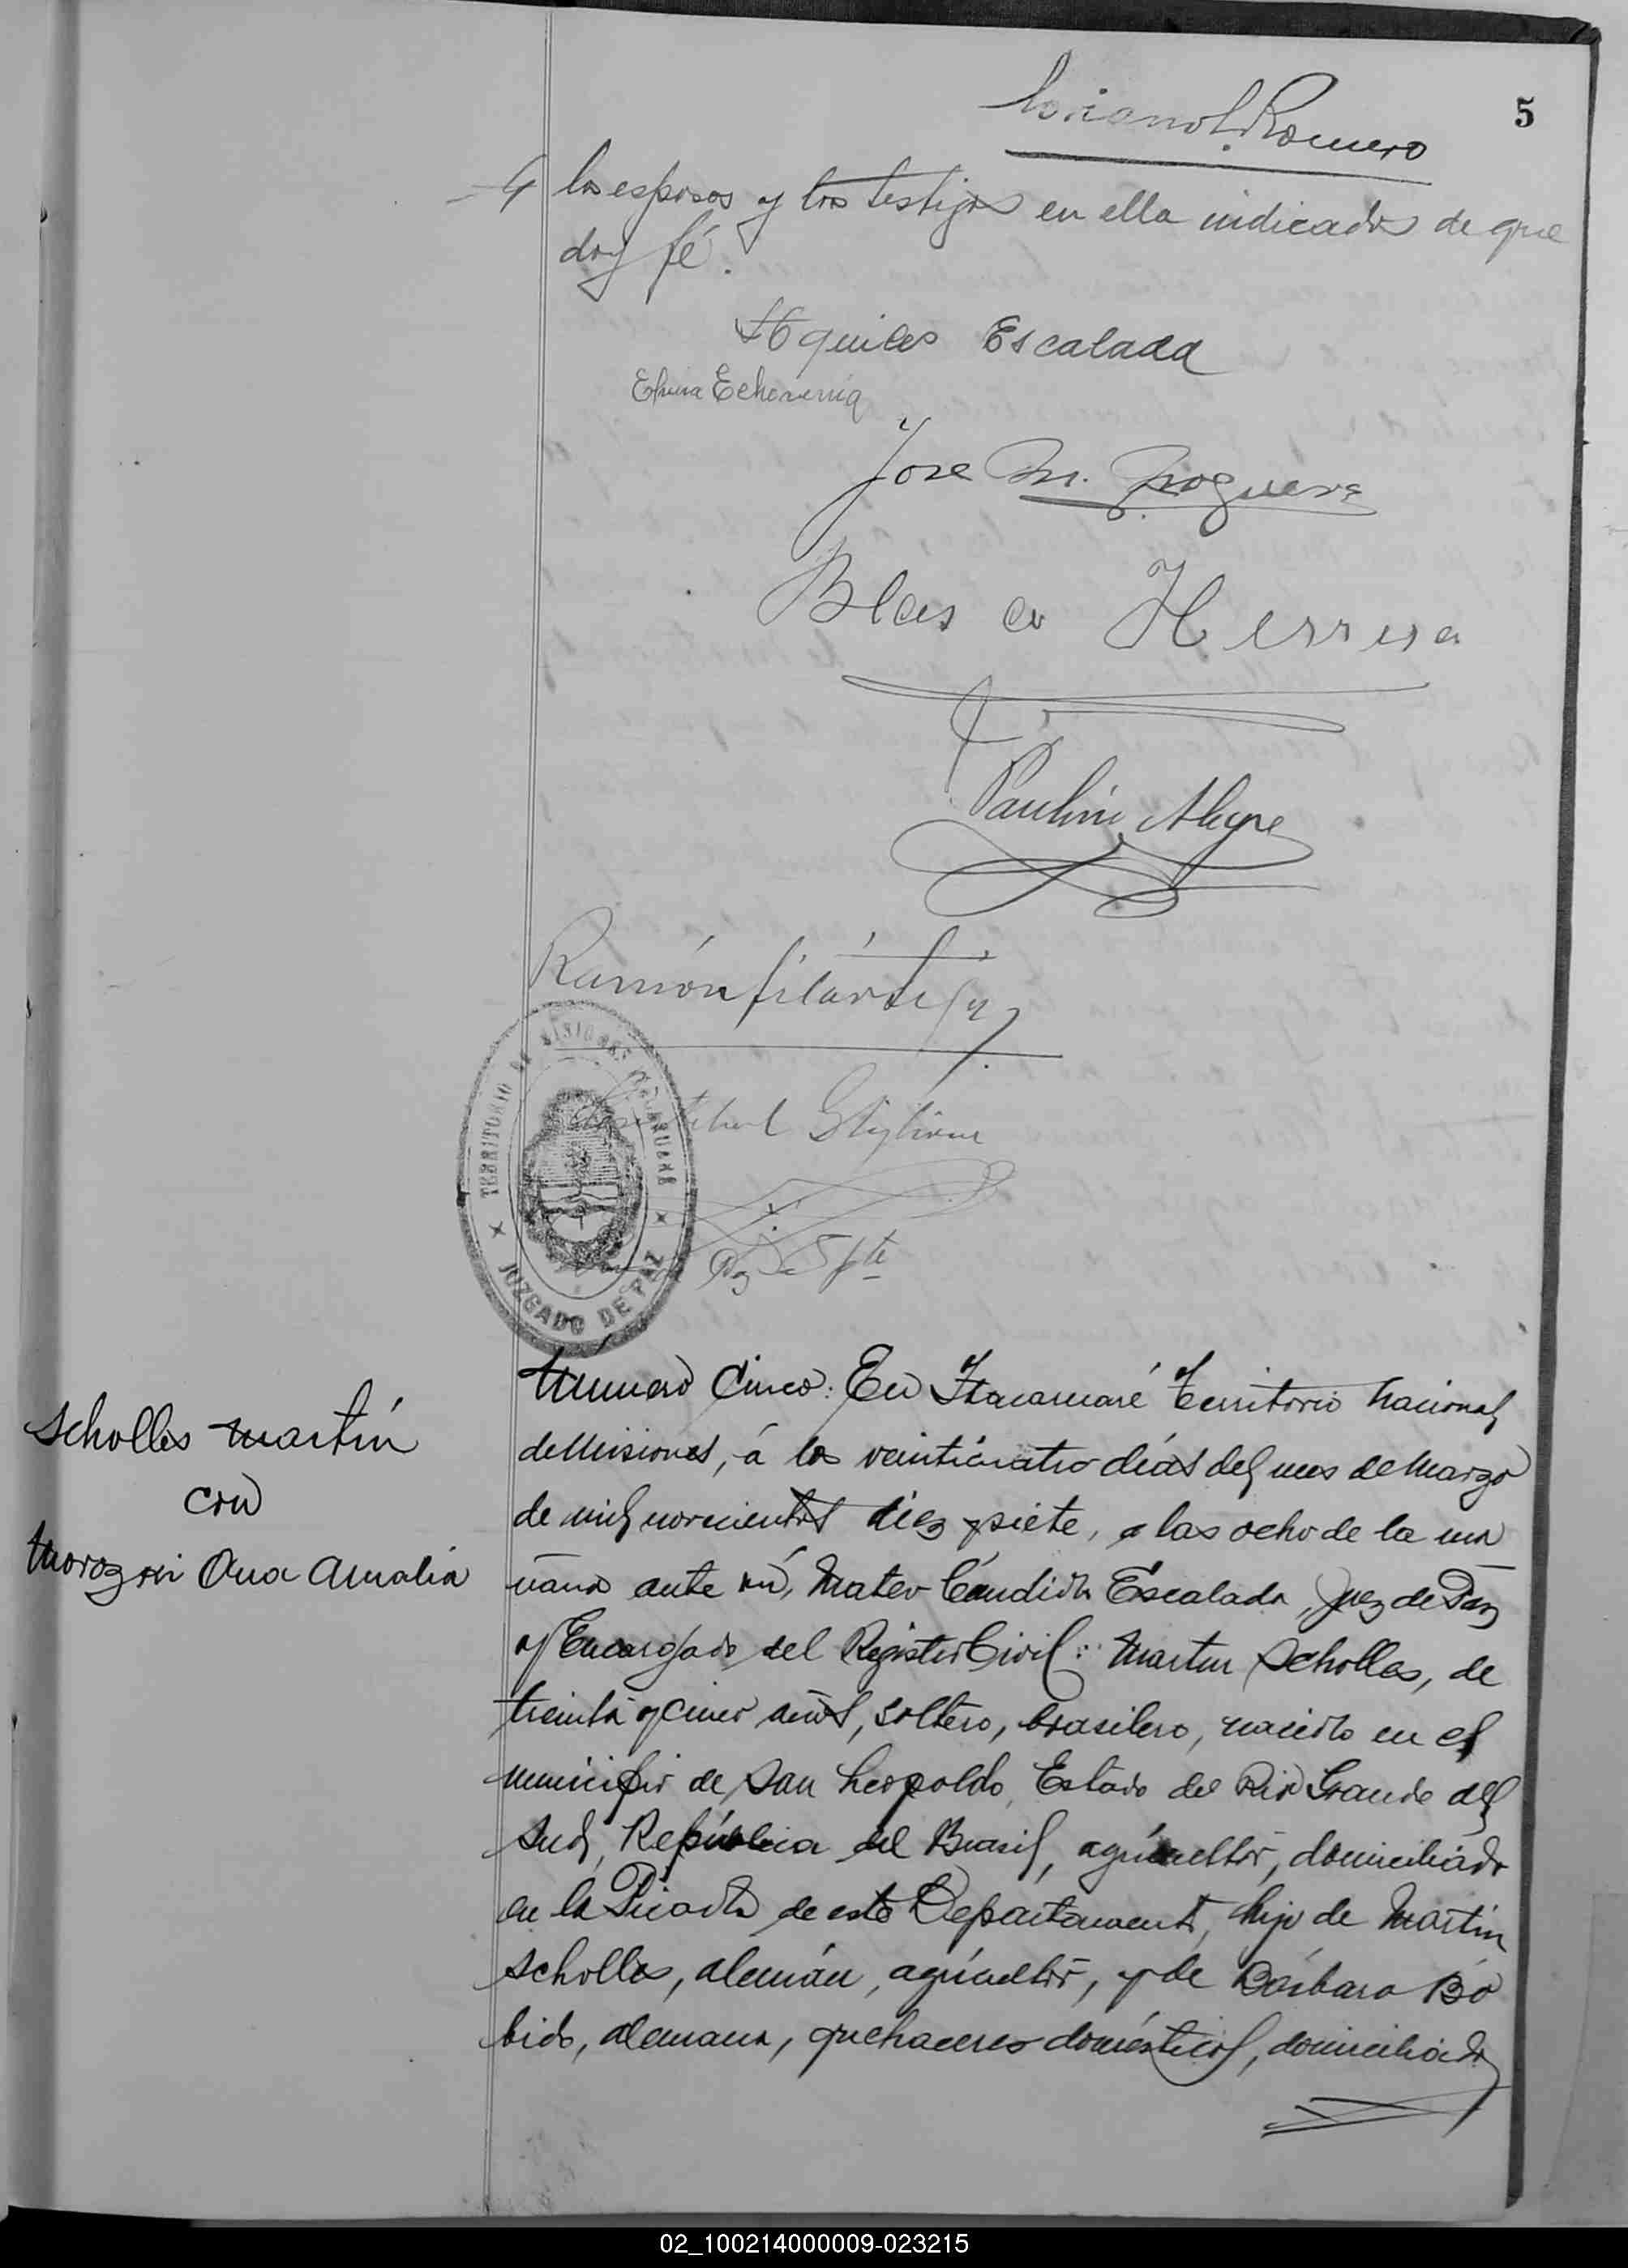 5
Romero
los esposos y los testigos en ella indicados de que
doy fé.
Aquiles Escalada
Elvira Echeverria
Jose M. Noguera
Blas a Herrera
Paulino Alegre
Ramón filártiga
TERRITORIO DE MISIONES
JUZGADO DE PAZ
Scholles Martín
con
Morozini Ana Amalia
Numero Cinco: En Itacaruaré Territorio Nacional
de Misiones, á los veinticuatro dias del mes de Marzo
de mil novecientos diez y siete, a las ocho de la ma
ñana ante mí, Mateo Cándido Escalada, Juez de Paz
y Encargado del Registro Civil: Martin Scholles, de
treinta y cinco años, soltero, brasilero, nacido en el
municipio de San Leopoldo, Estado del Rio Grande del
Sud, República del Brasil, agricultor, domiciliado
en la Picada de este Departamento, hijo de Martin
Scholles, alemán, agricultor, y de Bárbara Bo
bido, alemana, quehaceres domésticos, domiciliados
02_100214000009-023215